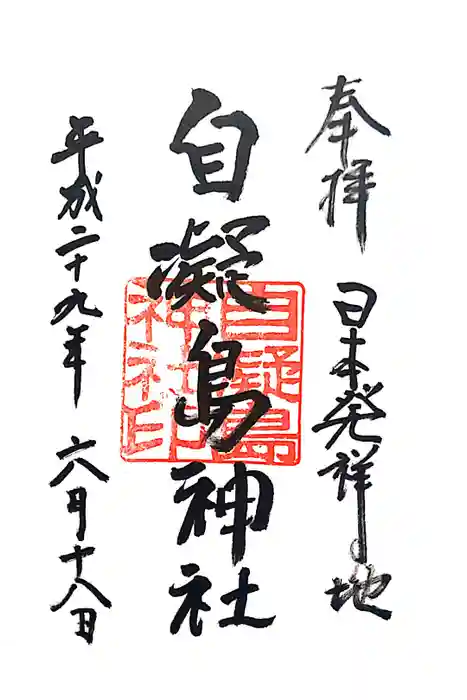 奉拝 日本発祥の地
自凝島神社
自凝島神社印
平成二十九年 六月十八日